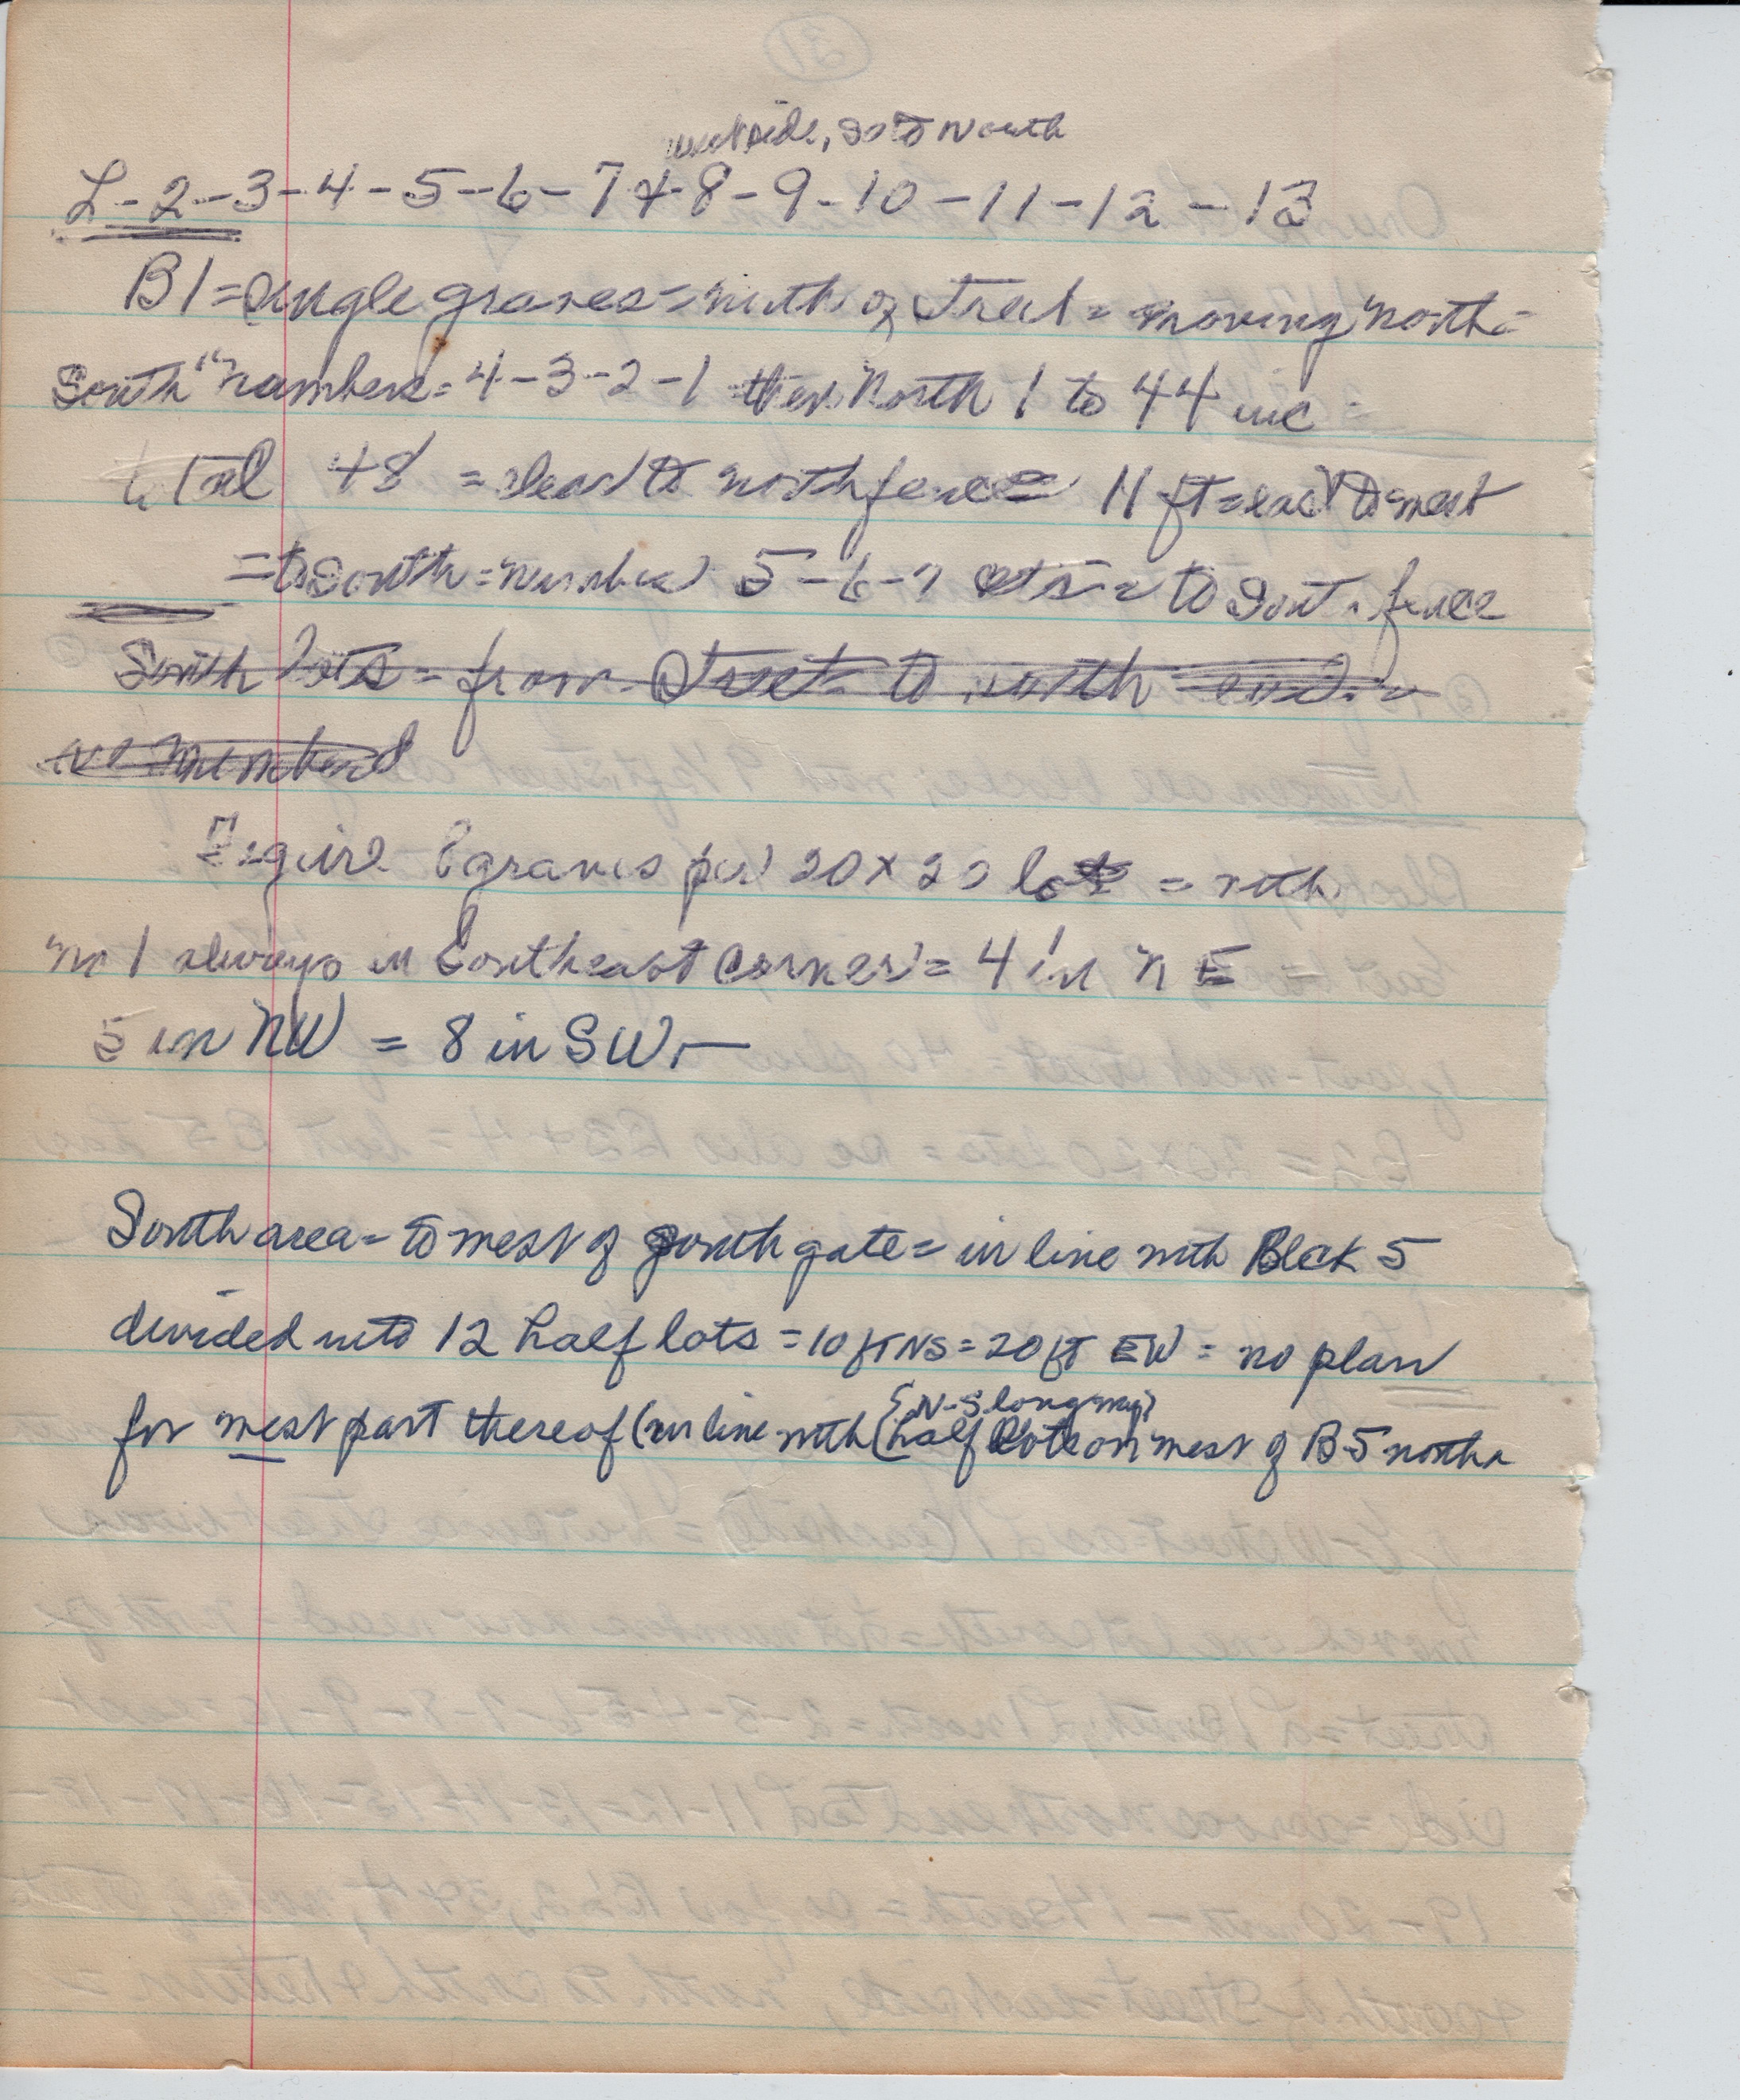 west side, So to North
L-2-3-4-5-6-7+8-9-10-11-12-13
B1=Single graves=north of Street=moving north=
South "numbers=4-3-2-1 then North 1 to 44 inc=
total 48 = clear to north fence 11 ft=east to west
=to South=number 5-6-7 etc= to South fence
South lots=from Street to north end=
are numbered
Figure 8 graves per 20x20 lot = with
no 1 always in Southeast corner=4 in NE
5 in NW = 8 in SW.—
South area=to west of South gate=in line with Block 5
divided into 12 half lots=10 ft NS=20 ft EW=no plan
for west part thereof (in line with (half lots on west of B-5 north
N-S long way)